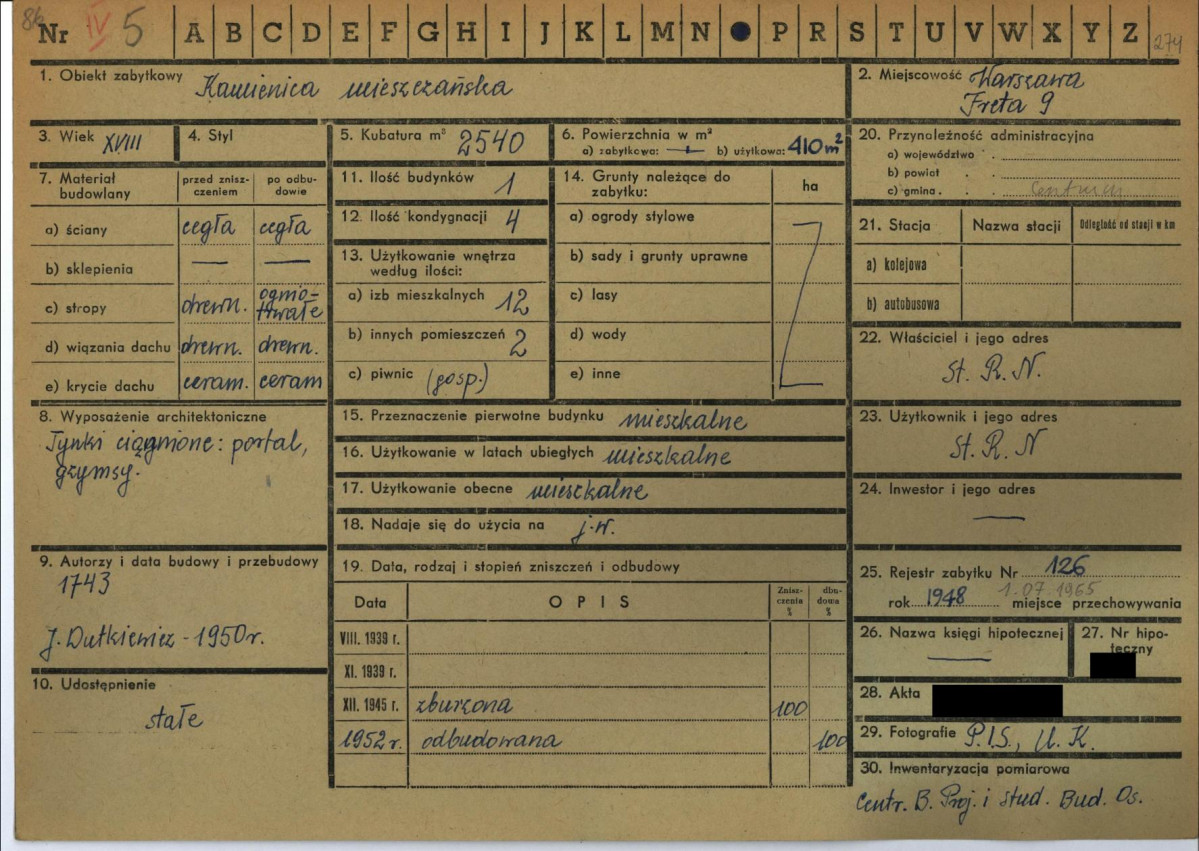 86 Nr IV 5 A B C D E F G H I J K L M N P R S T U V W X Y Z 274
1. Obiekt zabytkowy Kamienica mieszczańska
2. Miejscowość Warszawa
Freta 9
3. Wiek XVIII
4. Styl
5. Kubatura m³ 2540
6. Powierzchnia w m²
a) zabytkowa: — b) użytkowa: 410 m²
7. Materiał budowlany
przed zniszczeniem
po odbudowie
a) ściany cegła cegła
b) sklepienia — —
c) stropy drewn. ognio-
trwałe
d) wiązania dachu drewn. drewn.
e) krycie dachu ceram. ceram
8. Wyposażenie architektoniczne
Tynki ciągnione: portal,
gzymsy.
9. Autorzy i data budowy i przebudowy
1743
J. Dutkiewicz - 1950 r.
10. Udostępnienie
stałe
11. Ilość budynków 1
12. Ilość kondygnacji 4
13. Użytkowanie wnętrza
według ilości:
a) izb mieszkalnych 12
b) innych pomieszczeń 2
c) piwnic (gosp.)
14. Grunty należące do
zabytku:
ha
a) ogrody stylowe
b) sady i grunty uprawne
c) lasy
d) wody
e) inne
15. Przeznaczenie pierwotne budynku mieszkalne
16. Użytkowanie w latach ubiegłych mieszkalne
17. Użytkowanie obecne mieszkalne
18. Nadaje się do użycia na j.w.
19. Data, rodzaj i stopień zniszczeń i odbudowy
Data OPIS Znisz-
czenia
% dbu-
dowa
%
VIII. 1939 r.
XI. 1939 r.
XII. 1945 r. zburzona 100
1952 r. odbudowana 100
20. Przynależność administracyjna
a) województwo
b) powiat
c) gmina Centrum
21. Stacja Nazwa stacji Odległość od stacji w km
a) kolejowa
b) autobusowa
22. Właściciel i jego adres
St. R. N.
23. Użytkownik i jego adres
St. R. N
24. Inwestor i jego adres
—
25. Rejestr zabytku Nr 126
1.07.1965
rok 1948 miejsce przechowywania
26. Nazwa księgi hipotecznej
—
27. Nr hipo-
teczny
28. Akta
29. Fotografie P.I.S., U. K.
30. Inwentaryzacja pomiarowa
Centr. B. Proj. i Stud. Bud. Os.